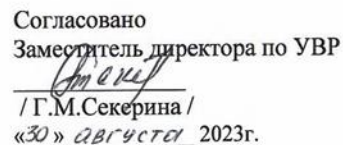 Согласовано
Заместитель директора по УВР
/ Г.М.Секерина /
«30» августа 2023г.